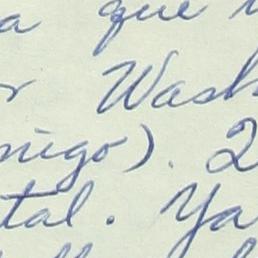 a que
r Wash
migo). 2
tal. Ya